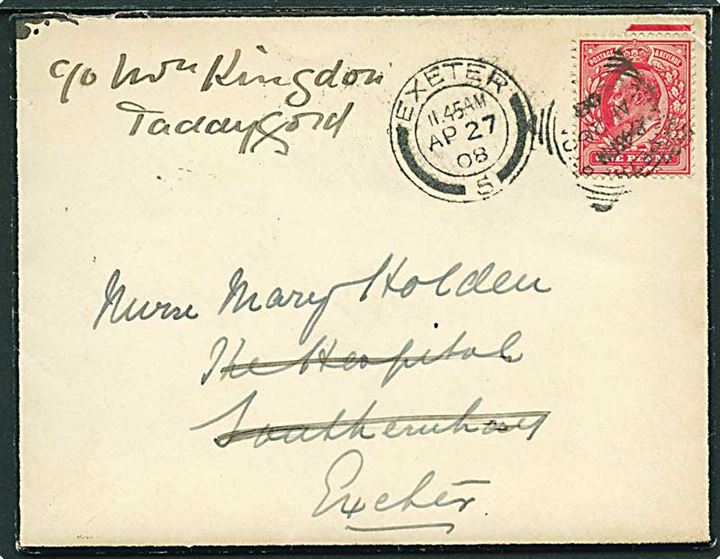 c/o Mrs Kingdon
Taddyford
EXETER
11.45AM
AP 27
08
5
POSTAGE & REVENUE
ONE PENNY
Nurse Mary Holden
The Hospital
Southernhay
Exeter